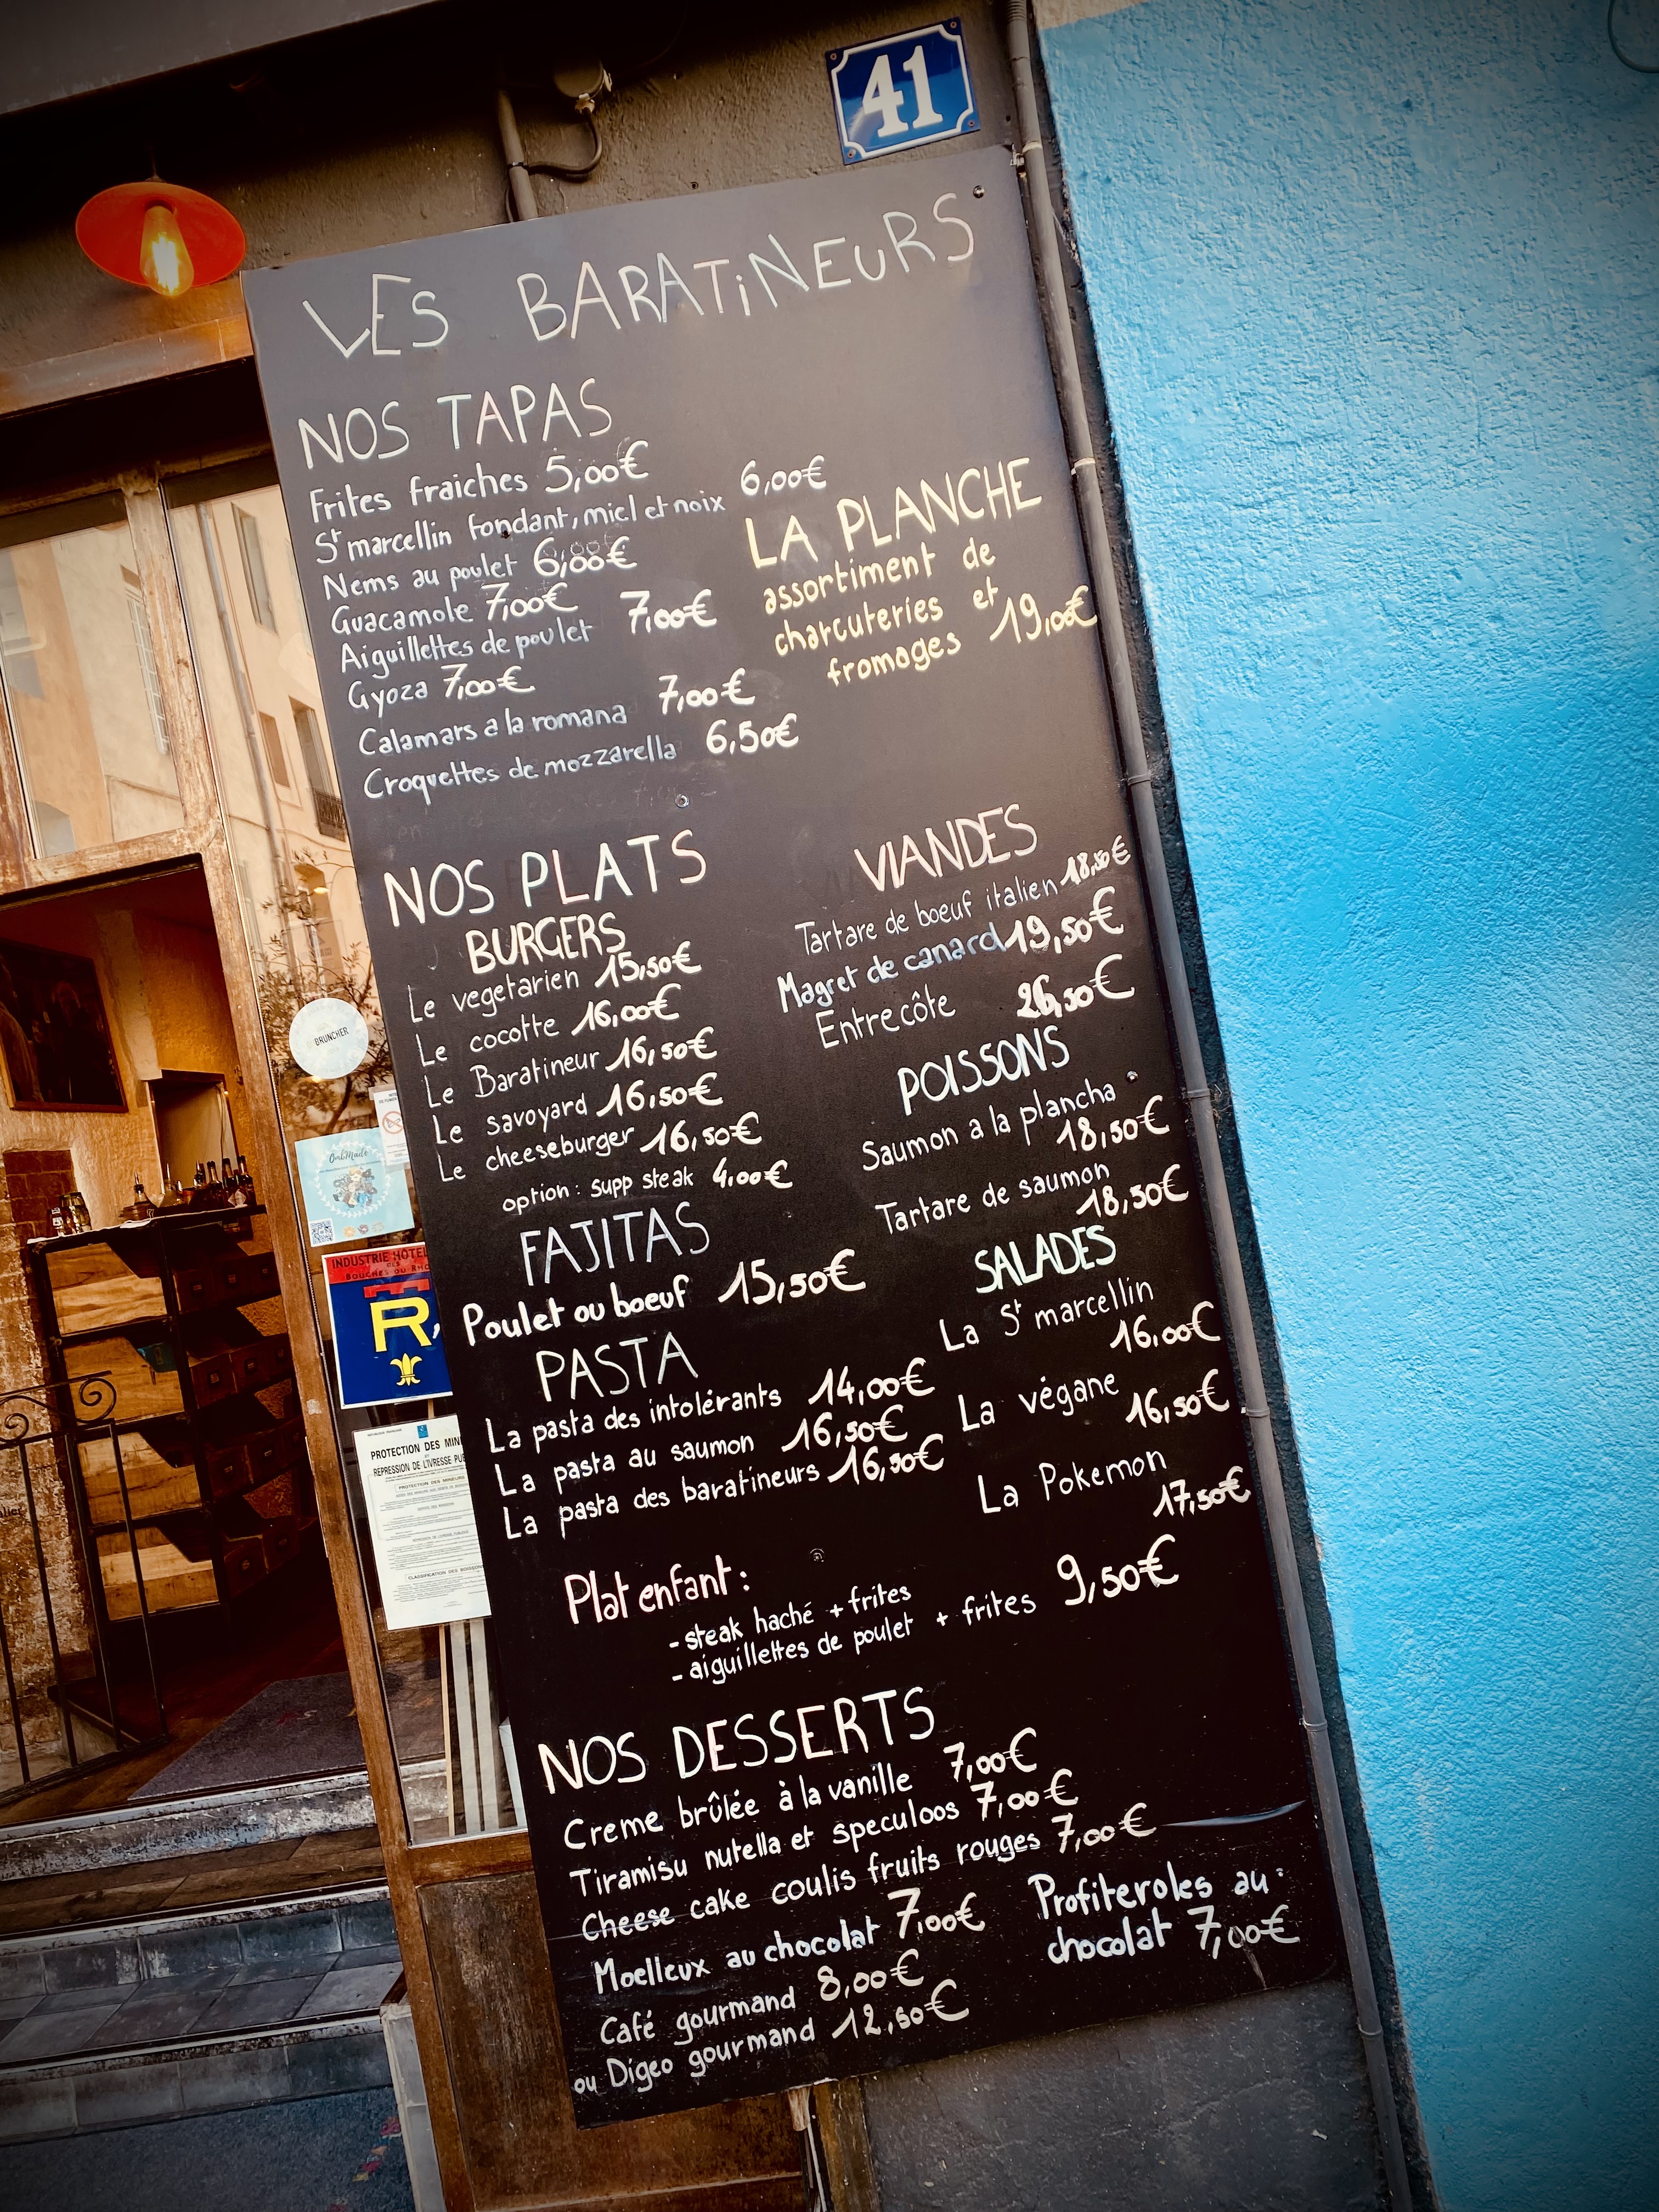 41
LES BARATiNEURS
NOS TAPAS
Frites fraiches 5,00€
St marcellin fondant, miel et noix 6,00€
Nems au poulet 6,00€
Guacamole 7,00€
Aiguillettes de poulet 7,00€
Gyoza 7,00€
Calamars a la romana 7,00€
Croquettes de mozzarella 6,50€
LA PLANCHE
assortiment de
charcuteries et
fromages 19,00€
NOS PLATS
BURGERS
Le vegetarien 15,50€
Le cocotte 16,00€
Le Baratineur 16,50€
Le savoyard 16,50€
Le cheeseburger 16,50€
option: supp steak 4,00€
FAJITAS
Poulet ou boeuf 15,50€
PASTA
La pasta des intolérants 14,00€
La pasta au saumon 16,50€
La pasta des baratineurs 16,50€
VIANDES
Tartare de boeuf italien 18,50€
Magret de canard 19,50€
Entrecôte 26,50€
POISSONS
Saumon a la plancha
18,50€
Tartare de saumon
18,50€
SALADES
La St marcellin
16.00€
La végane
16,50€
La Pokemon
17,50€
Plat enfant :
- steak haché + frites
- aiguillettes de poulet + frites 9,50€
NOS DESSERTS
Creme brûlée à la vanille 7,00€
Tiramisu nutella et speculoos 7,00€
Cheese cake coulis fruits rouges 7,00€
Moelleux au chocolat 7,00€
Café gourmand 8,00€
ou Digeo gourmand 12,50€
Profiteroles au
chocolat 7,00€
BRUNCHER
OmbMade
INDUSTRIE HÔTEL
BOUCHES DU RHO
R
PROTECTION DES MIN
RÉPRESSION DE L'IVRESSE PUB
PROTECTION DES MINEURS
CLASSIFICATION DES BOISSONS